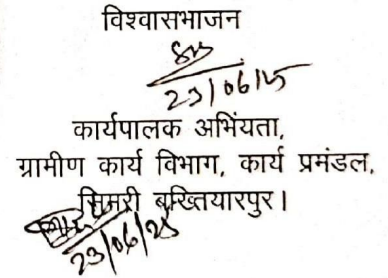 विश्वासभाजन
23/06/25
कार्यपालक अभिंयता,
ग्रामीण कार्य विभाग, कार्य प्रमंडल,
सिमरी बख्तियारपुर।
23/06/25